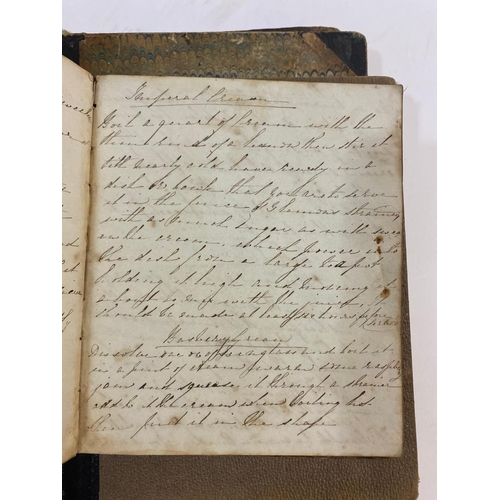 Imperial Cream
Boil a quart of Cream with the
thin rind of a lemon then stir it
till nearly cold have ready in a
dish or bowl that you are to serve
it in the juice of 3 lemons strained
with as much sugar as will sweeten
the cream, which power into
the dish from a large tea pot
holding it high and moving it
about to mix with the juice, it
should be made at least six hours before
served
Rasberry Cream
Dissolve one oz of isinglass and boil it
in a pint of cream warm some raspberry
jam and squeeze it through a strainer
add to it the cream when boiling hot
then put it in the shape